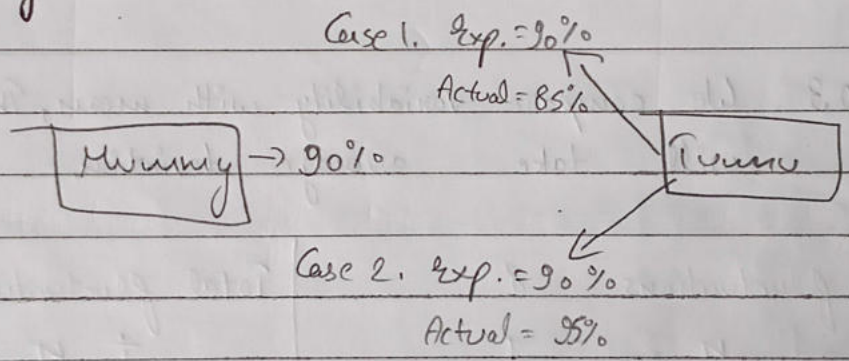 Case 1. Exp. = 90%
Actual = 85%
Mummy → 90%
Tunnu
Case 2. Exp. = 90%
Actual = 95%